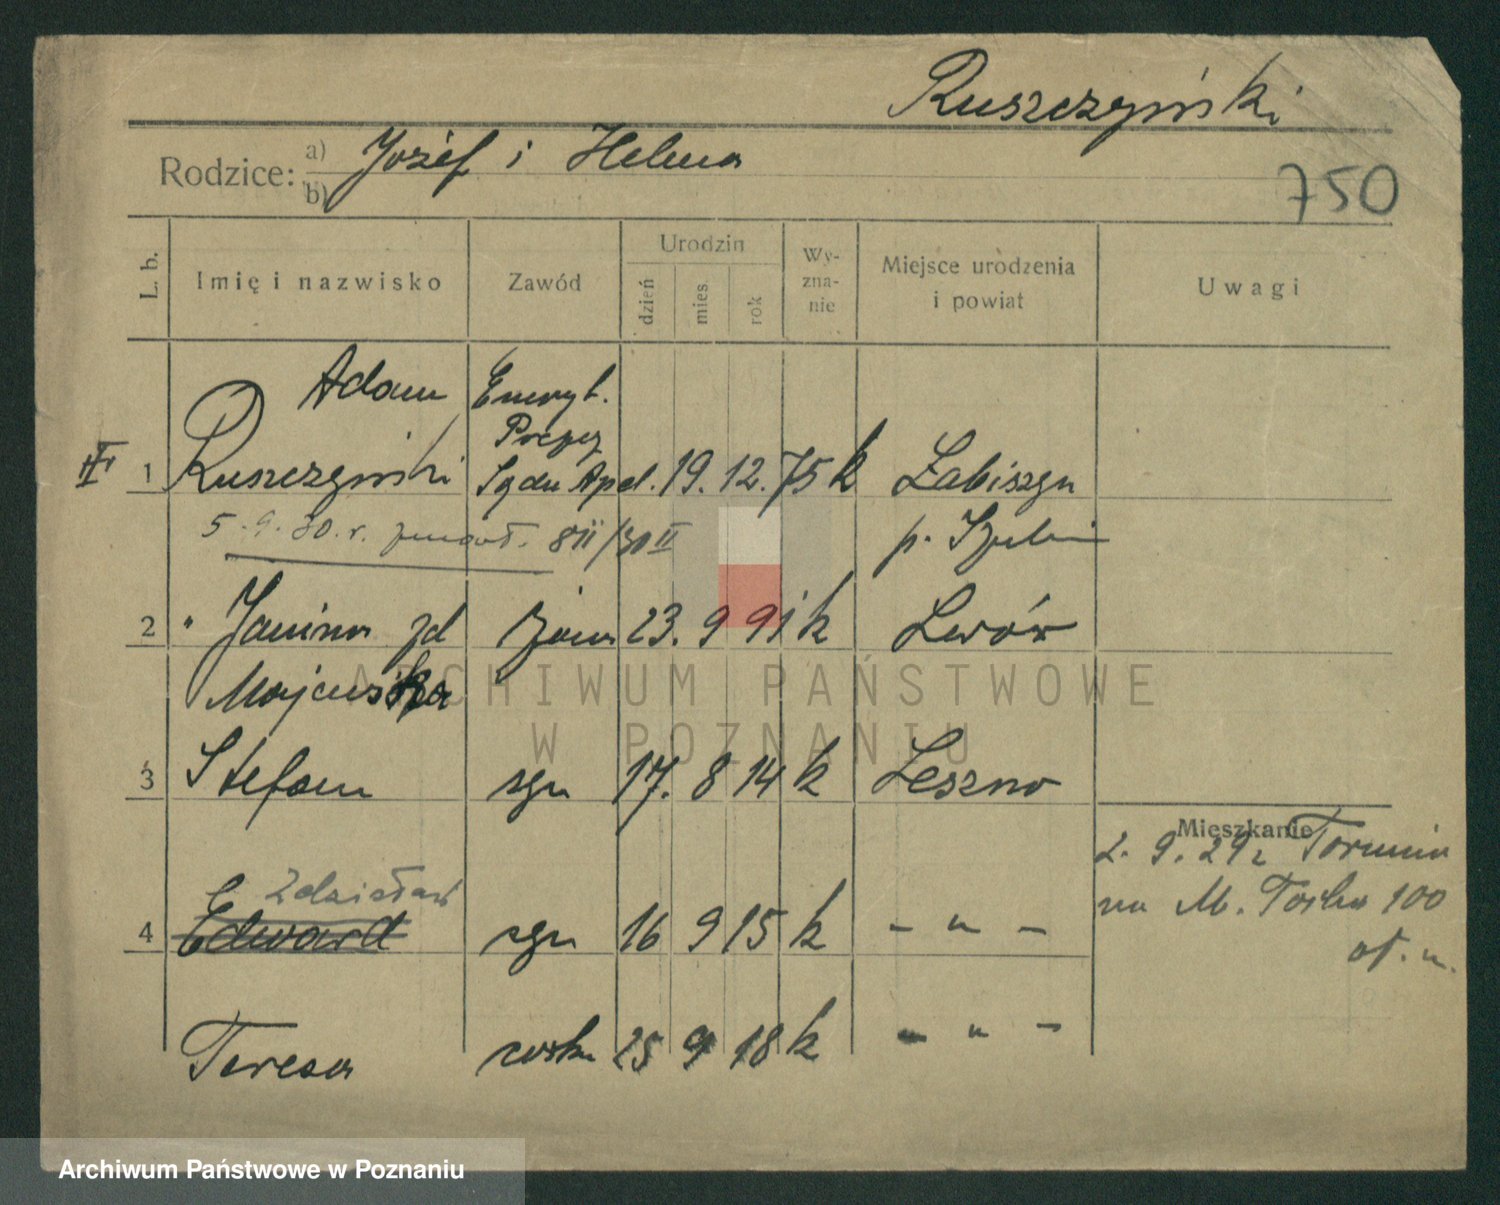 Ruszczyński
Rodzice: a) Józef i Helena
b)
750
L. b.
Imię i nazwisko
Zawód
Urodzin
dzień
mies.
rok
Wy-
zna-
nie
Miejsce urodzenia
i powiat
Uwagi
Adam Emeryt.
Prezes
1 Ruszczyński Sądu Apel. 19. 12. 75 k Łabiszyn
5.9.30.r. zmarł. p. Szubin
2 " Janina zd żona 23. 9 91 k Lwów
Majewska
3 Stefan syn 17. 8 14 k Leszno
Mieszkanie
2. 9. 29 z Torunia
Zdzisław
na M. Focha 100
4 Edward syn 16 9 15 k - " -
Teresa córka 25 9 18 k - " -
ARCHIWUM PAŃSTWOWE
W POZNANIU
Archiwum Państwowe w Poznaniu